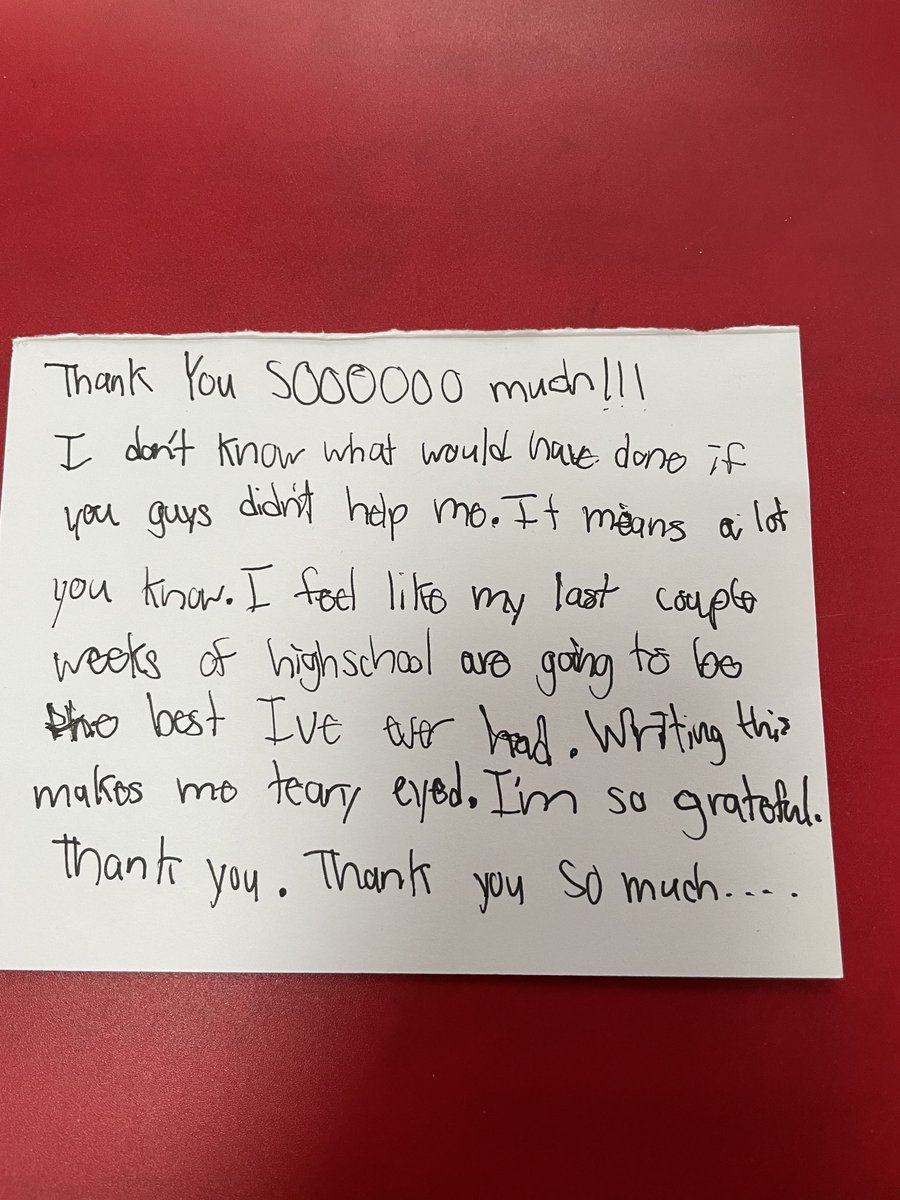 Thank You SOOOOOO much!!!
I don't know what would have done if
you guys didn't help me. It means a lot
you know. I feel like my last couple
weeks of highschool are going to be
the best I've ever had. Writing this
makes me teary eyed. I'm so grateful.
Thank you. Thank you so much....